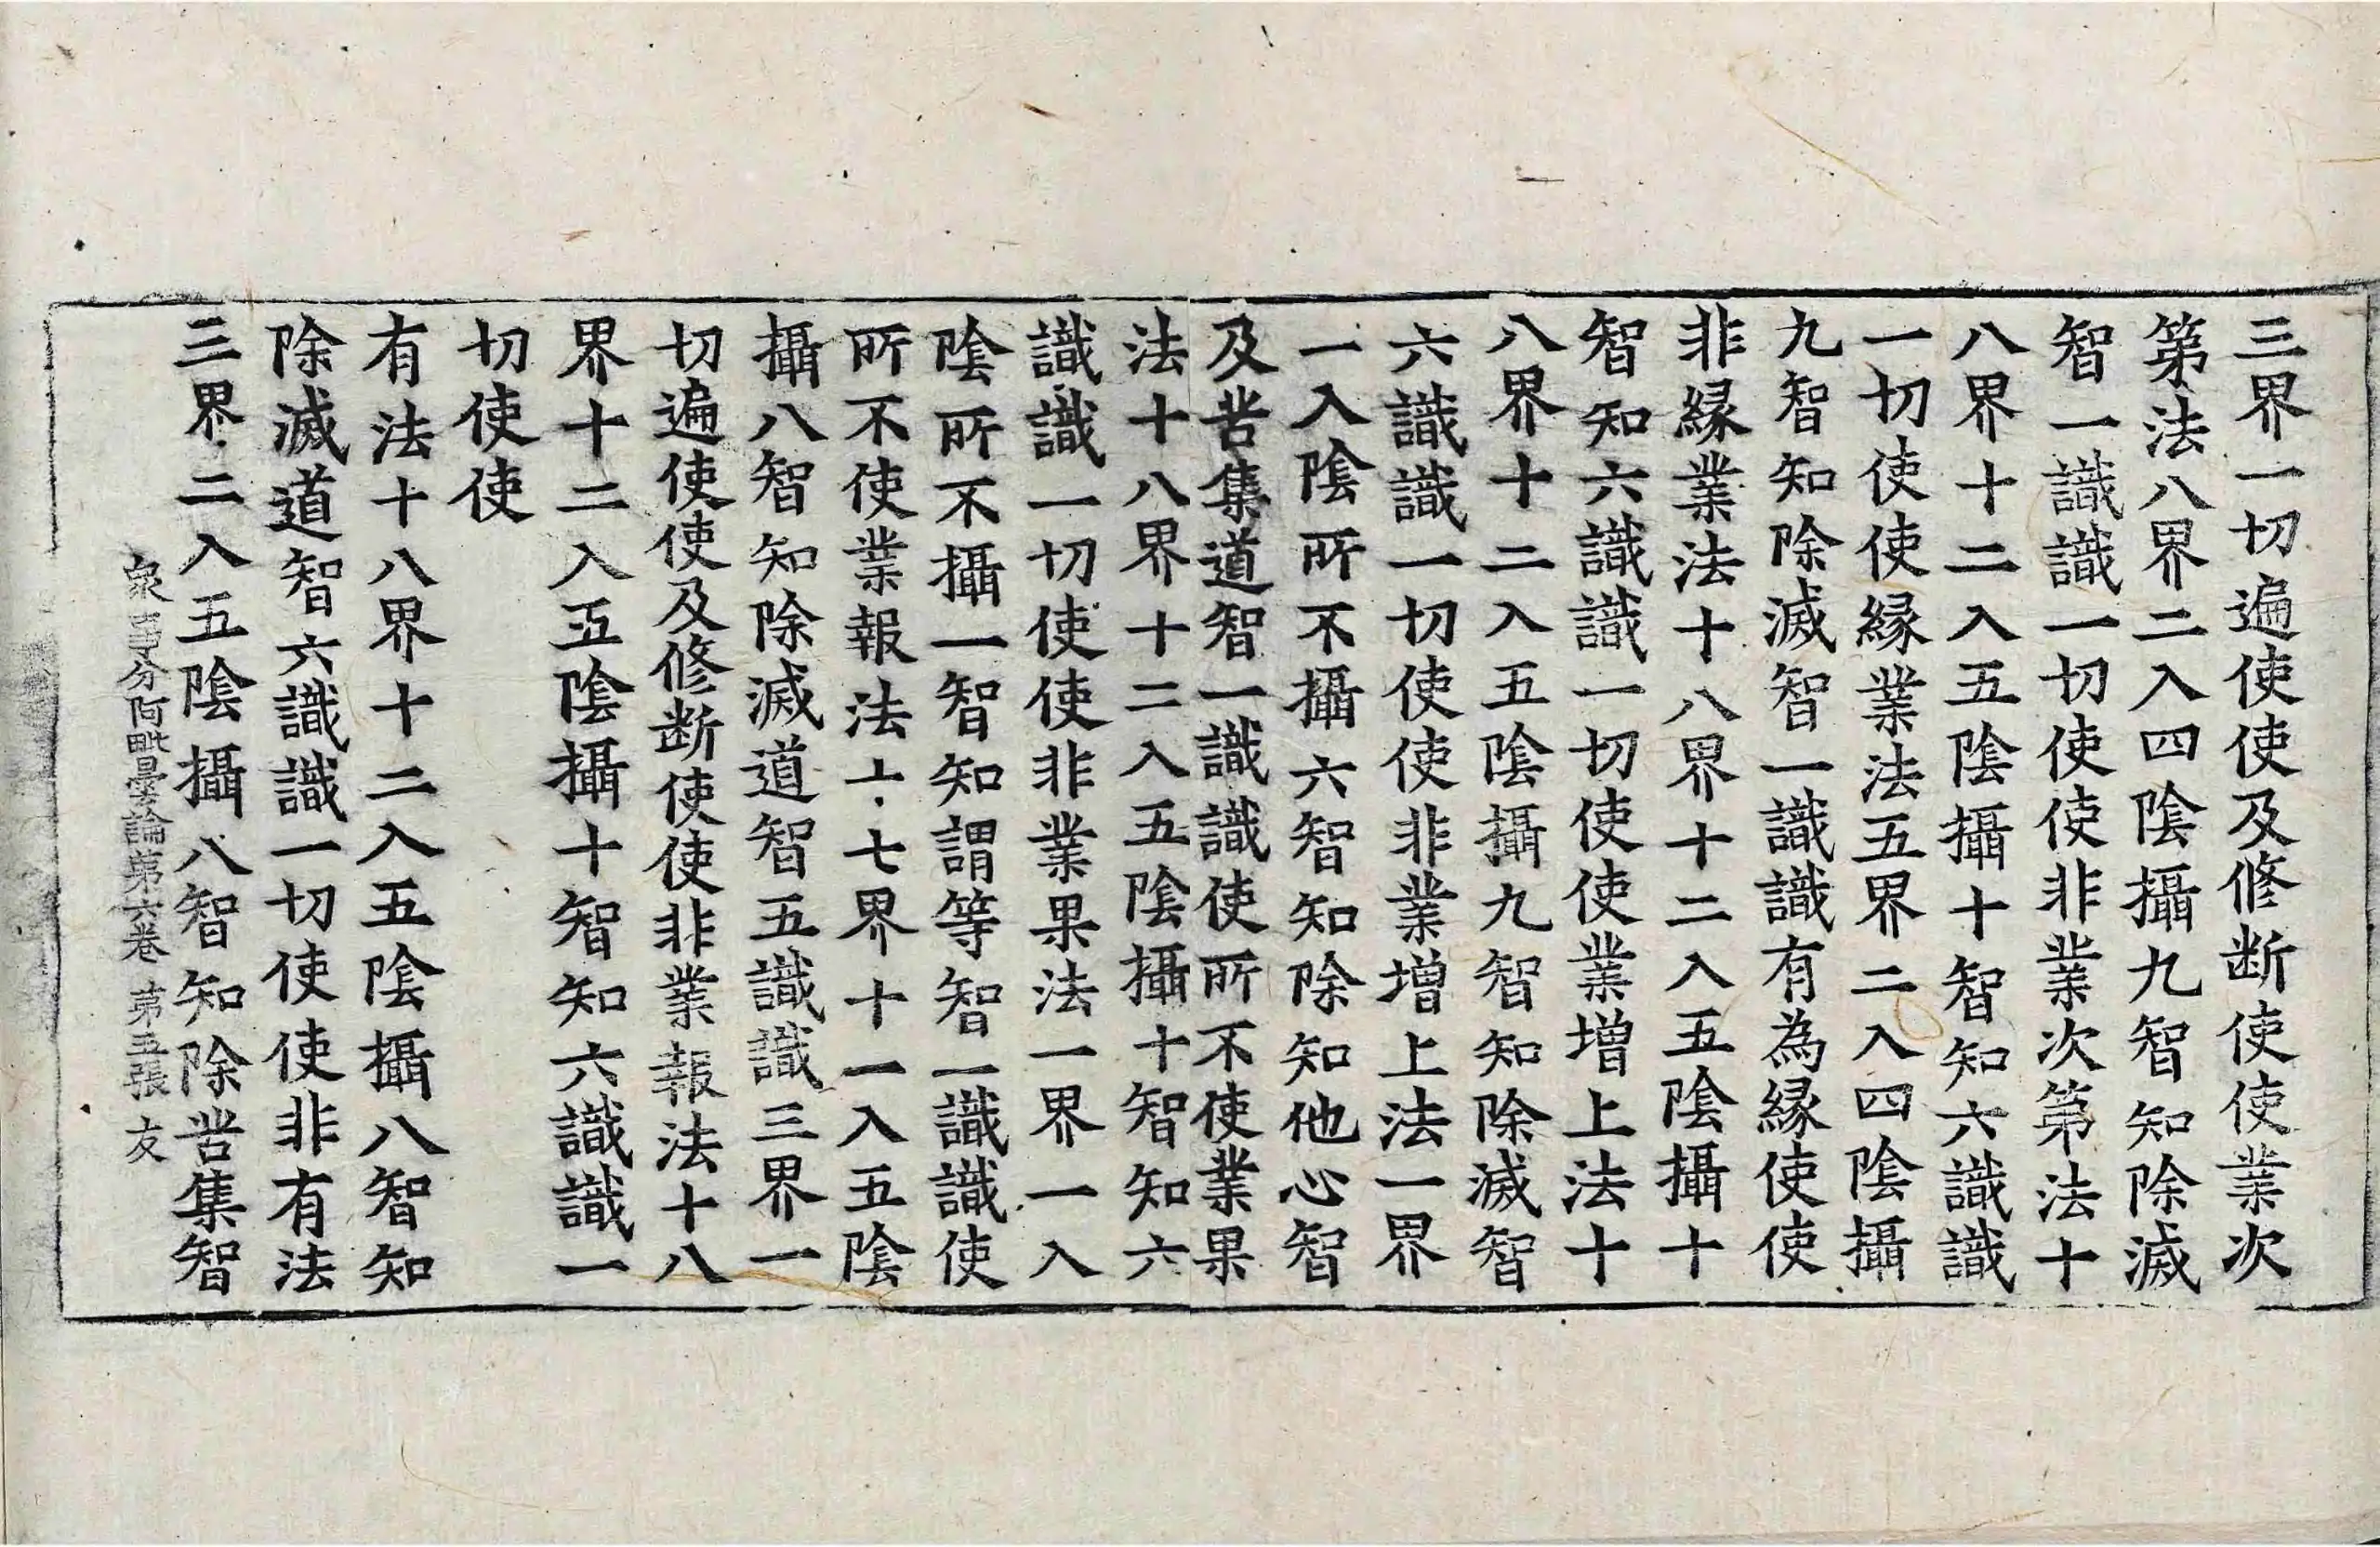 三界一切遍使使及修断使使業次
第法八界二入四陰攝九智知除滅
智一識識一切使使非業次第法十
八界十二入五陰攝十智知六識識
一切使使縁業法五界二入四陰攝
九智知除滅智一識識有為縁使使
非縁業法十八界十二入五陰攝十
智知六識識一切使使業增上法十
八界十二入五陰攝九智知除滅智
六識識一切使使非業增上法一界
一入陰所不攝六智知除知他心智
及苦集道智一識識使所不使業果
法十八界十二入五陰攝十智知六
識識一切使使非業果法一界一入
陰所不攝一智知謂等智一識識使
所不使業報法十七界十一入五陰
攝八智知除滅道智五識識三界一
切遍使使及修断使使非業報法十八
界十二入五陰攝十智知六識識一
切使使
有法十八界十二入五陰攝八智知
除滅道智六識識一切使使非有法
三界二入五陰攝八智知除苦集智
衆事分阿毗曇論第六卷 第五張 友